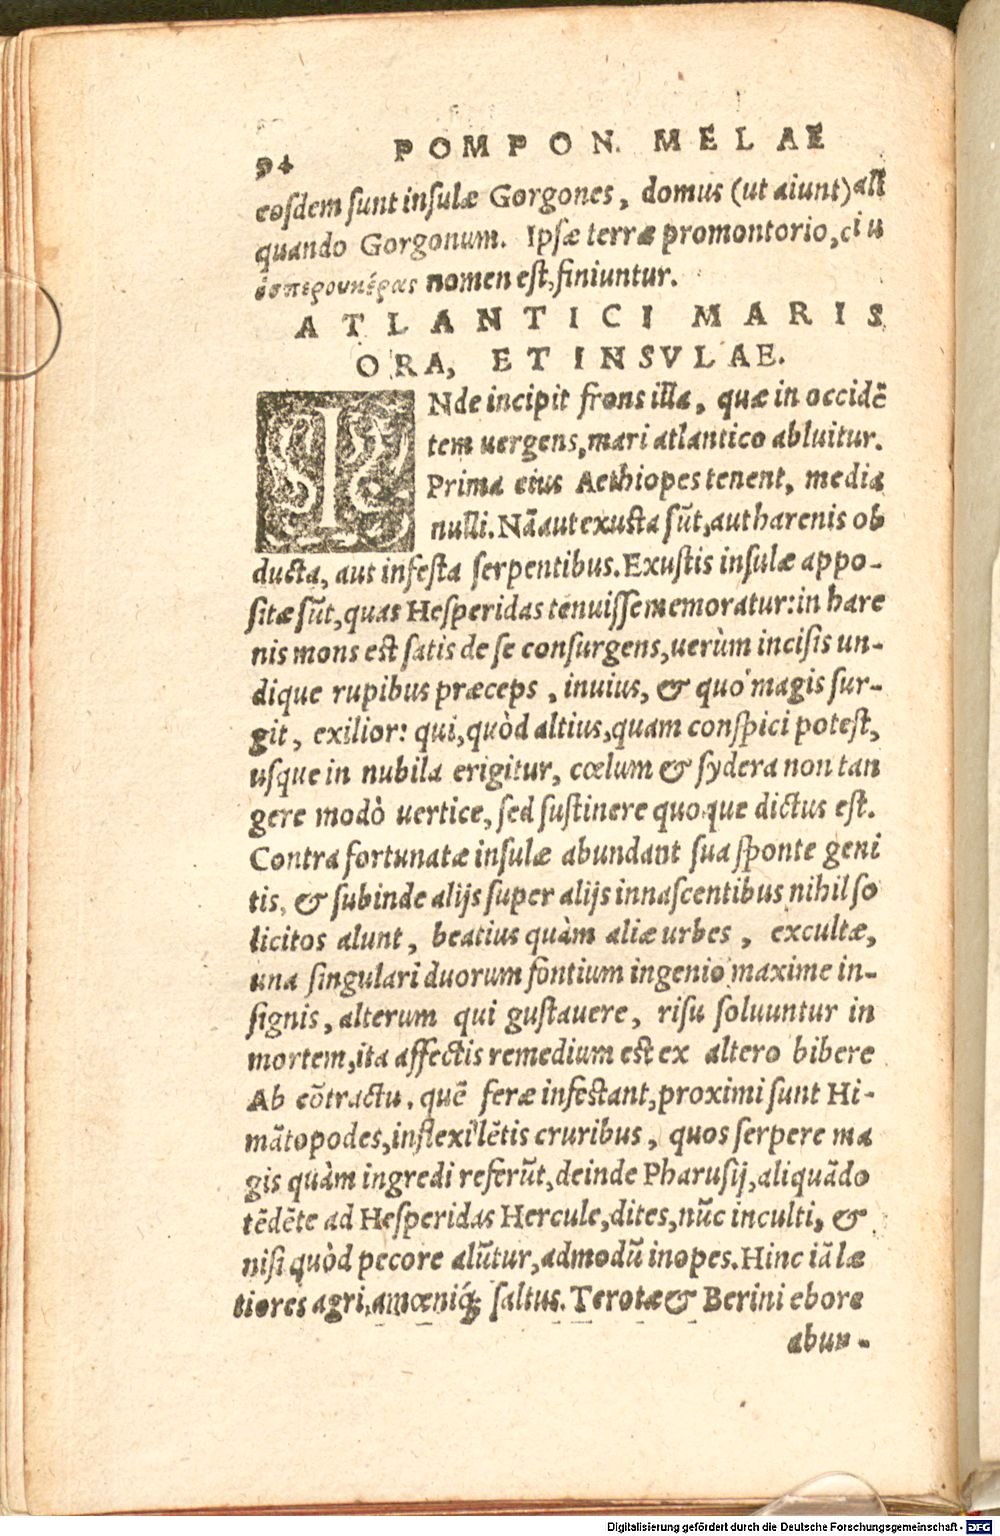 94 POMPON. MELAE
eosdem sunt insulæ Gorgones, domus (ut aiunt) ali
quando Gorgonum. Ipsæ terræ promontorio, ci u
ἑσπερουκέρας nomen est, finiuntur.
ATLANTICI MARIS
ORA, ET INSVLAE.
INde incipit frons illa, quæ in occidẽ
tem uergens, mari atlantico abluitur.
Prima eius Aethiopes tenent, media
nulli. Nã aut exusta sũt, aut harenis ob
ducta, aut infesta serpentibus. Exustis insulæ appo-
sitæ sũt, quas Hesperidas tenuisse memoratur: in hare
nis mons est satis de se consurgens, uerùm incisis un-
dique rupibus præceps, inuius, & quo magis sur-
git, exilior: qui, quòd altius, quam conspici potest,
usque in nubila erigitur, cœlum & sydera non tan
gere modò uertice, sed sustinere quoque dictus est.
Contra fortunatæ insulæ abundant sua sponte geni
tis, & subinde alijs super alijs innascentibus nihil so
licitos alunt, beatius quàm aliæ urbes, excultæ,
una singulari duorum fontium ingenio maxime in-
signis, alterum qui gustauere, risu soluuntur in
mortem, ita affectis remedium est ex altero bibere
Ab cõtractu, quẽ feræ infestant, proximi sunt Hi-
mãtopodes, inflexi lẽtis cruribus, quos serpere ma
gis quàm ingredi referũt, deinde Pharusij, aliquãdo
tẽdẽte ad Hesperidas Hercule, dites, nũc inculti, &
nisi quòd pecore alũtur, admodũ inopes. Hinc iã læ
tiores agri, amœniq́; saltus. Terotæ & Berini ebore
abun-
Digitalisierung gefördert durch die Deutsche Forschungsgemeinschaft - DFG